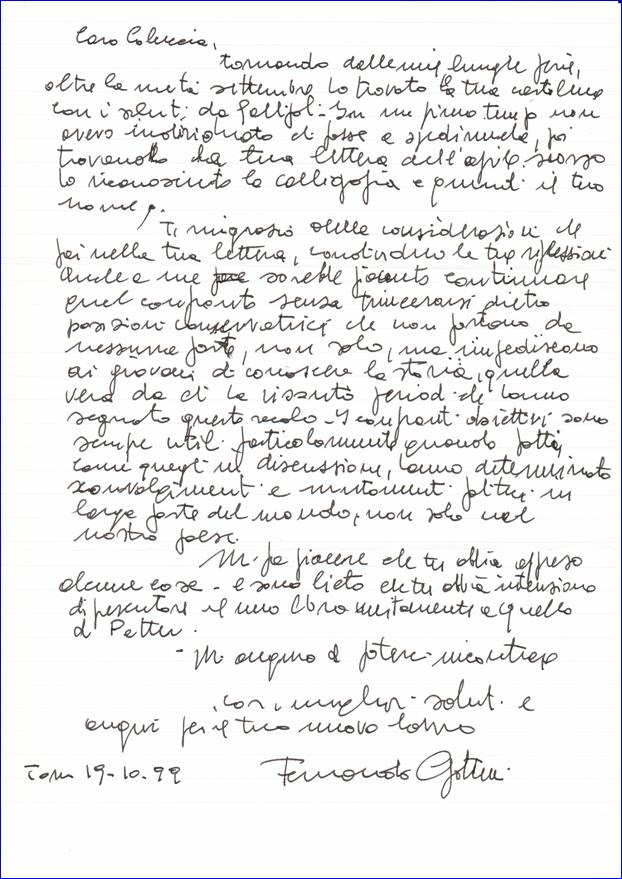 Caro Coluccia,
tornando dalle mie lunghe ferie,
oltre la metà settembre ho trovato la tua cartolina
con i saluti da Gallipoli - In un primo tempo non
avevo indovinato chi fosse a spedirmela, poi
trovando la tua lettera dell'aprile scorso
ho riconosciuto la calligrafia e quindi il tuo
nome.
Ti ringrazio delle considerazioni che
fai nella tua lettera, condivido le tue riflessioni
anche a me sarebbe piaciuto continuare
quel confronto senza trincerarsi dietro
posizioni conservatrici che non portano da
nessuna parte, non solo, ma impediscono
ai giovani di conoscere la storia, quella
vera da chi ha vissuto periodi che hanno
segnato questo secolo - I confronti obiettivi sono
sempre utili particolarmente quando fatti,
come quegli in discussione, hanno determinato
sconvolgimenti e mutamenti politici in
larga parte del mondo, non solo nel
nostro paese.
Mi fa piacere che tu abbia appreso
alcune cose - e sono lieto che tu abbia intenzione
di presentare il mio libro unitamente a quello
di
- Mi auguro di poterci incontrare
con i migliori saluti e
auguri per il tuo nuovo lavoro
19-10-99 Fernando